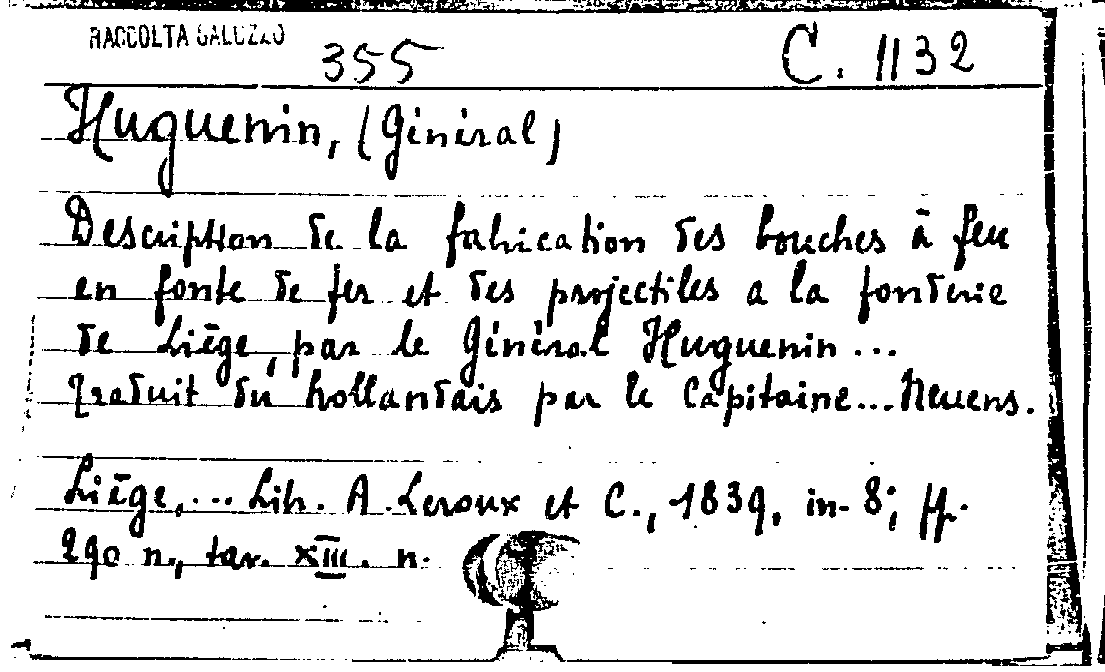 RACCOLTA SALUZZO 355 C. 1132
Huguenin, (Général)
Description de la fabrication des bouches à feu
en fonte de fer et des projectiles a la fonderie
de Liège, par le Général Huguenin ...
Traduit du hollandais par le Capitaine... Neuens.
Liège,... Lib. A. Leroux et C., 1839, in-8; pp.
290 n., tav. XIII. n.